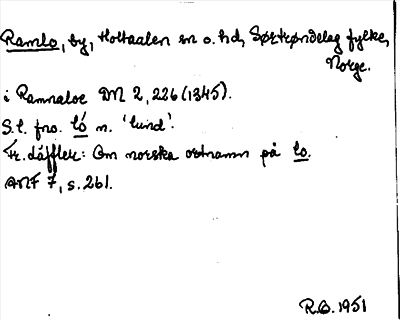 Ramlo, by, Holtaalen sn o. hd, Sørtrøndelag fylke,
Norge.
i Ramnaloe DN 2, 226 (1345).
S.l. fno. ló n. 'lund'.
Fr. Läffler: Om norska ortnamn på lo.
ANF 7, s. 261.
R.O. 1951